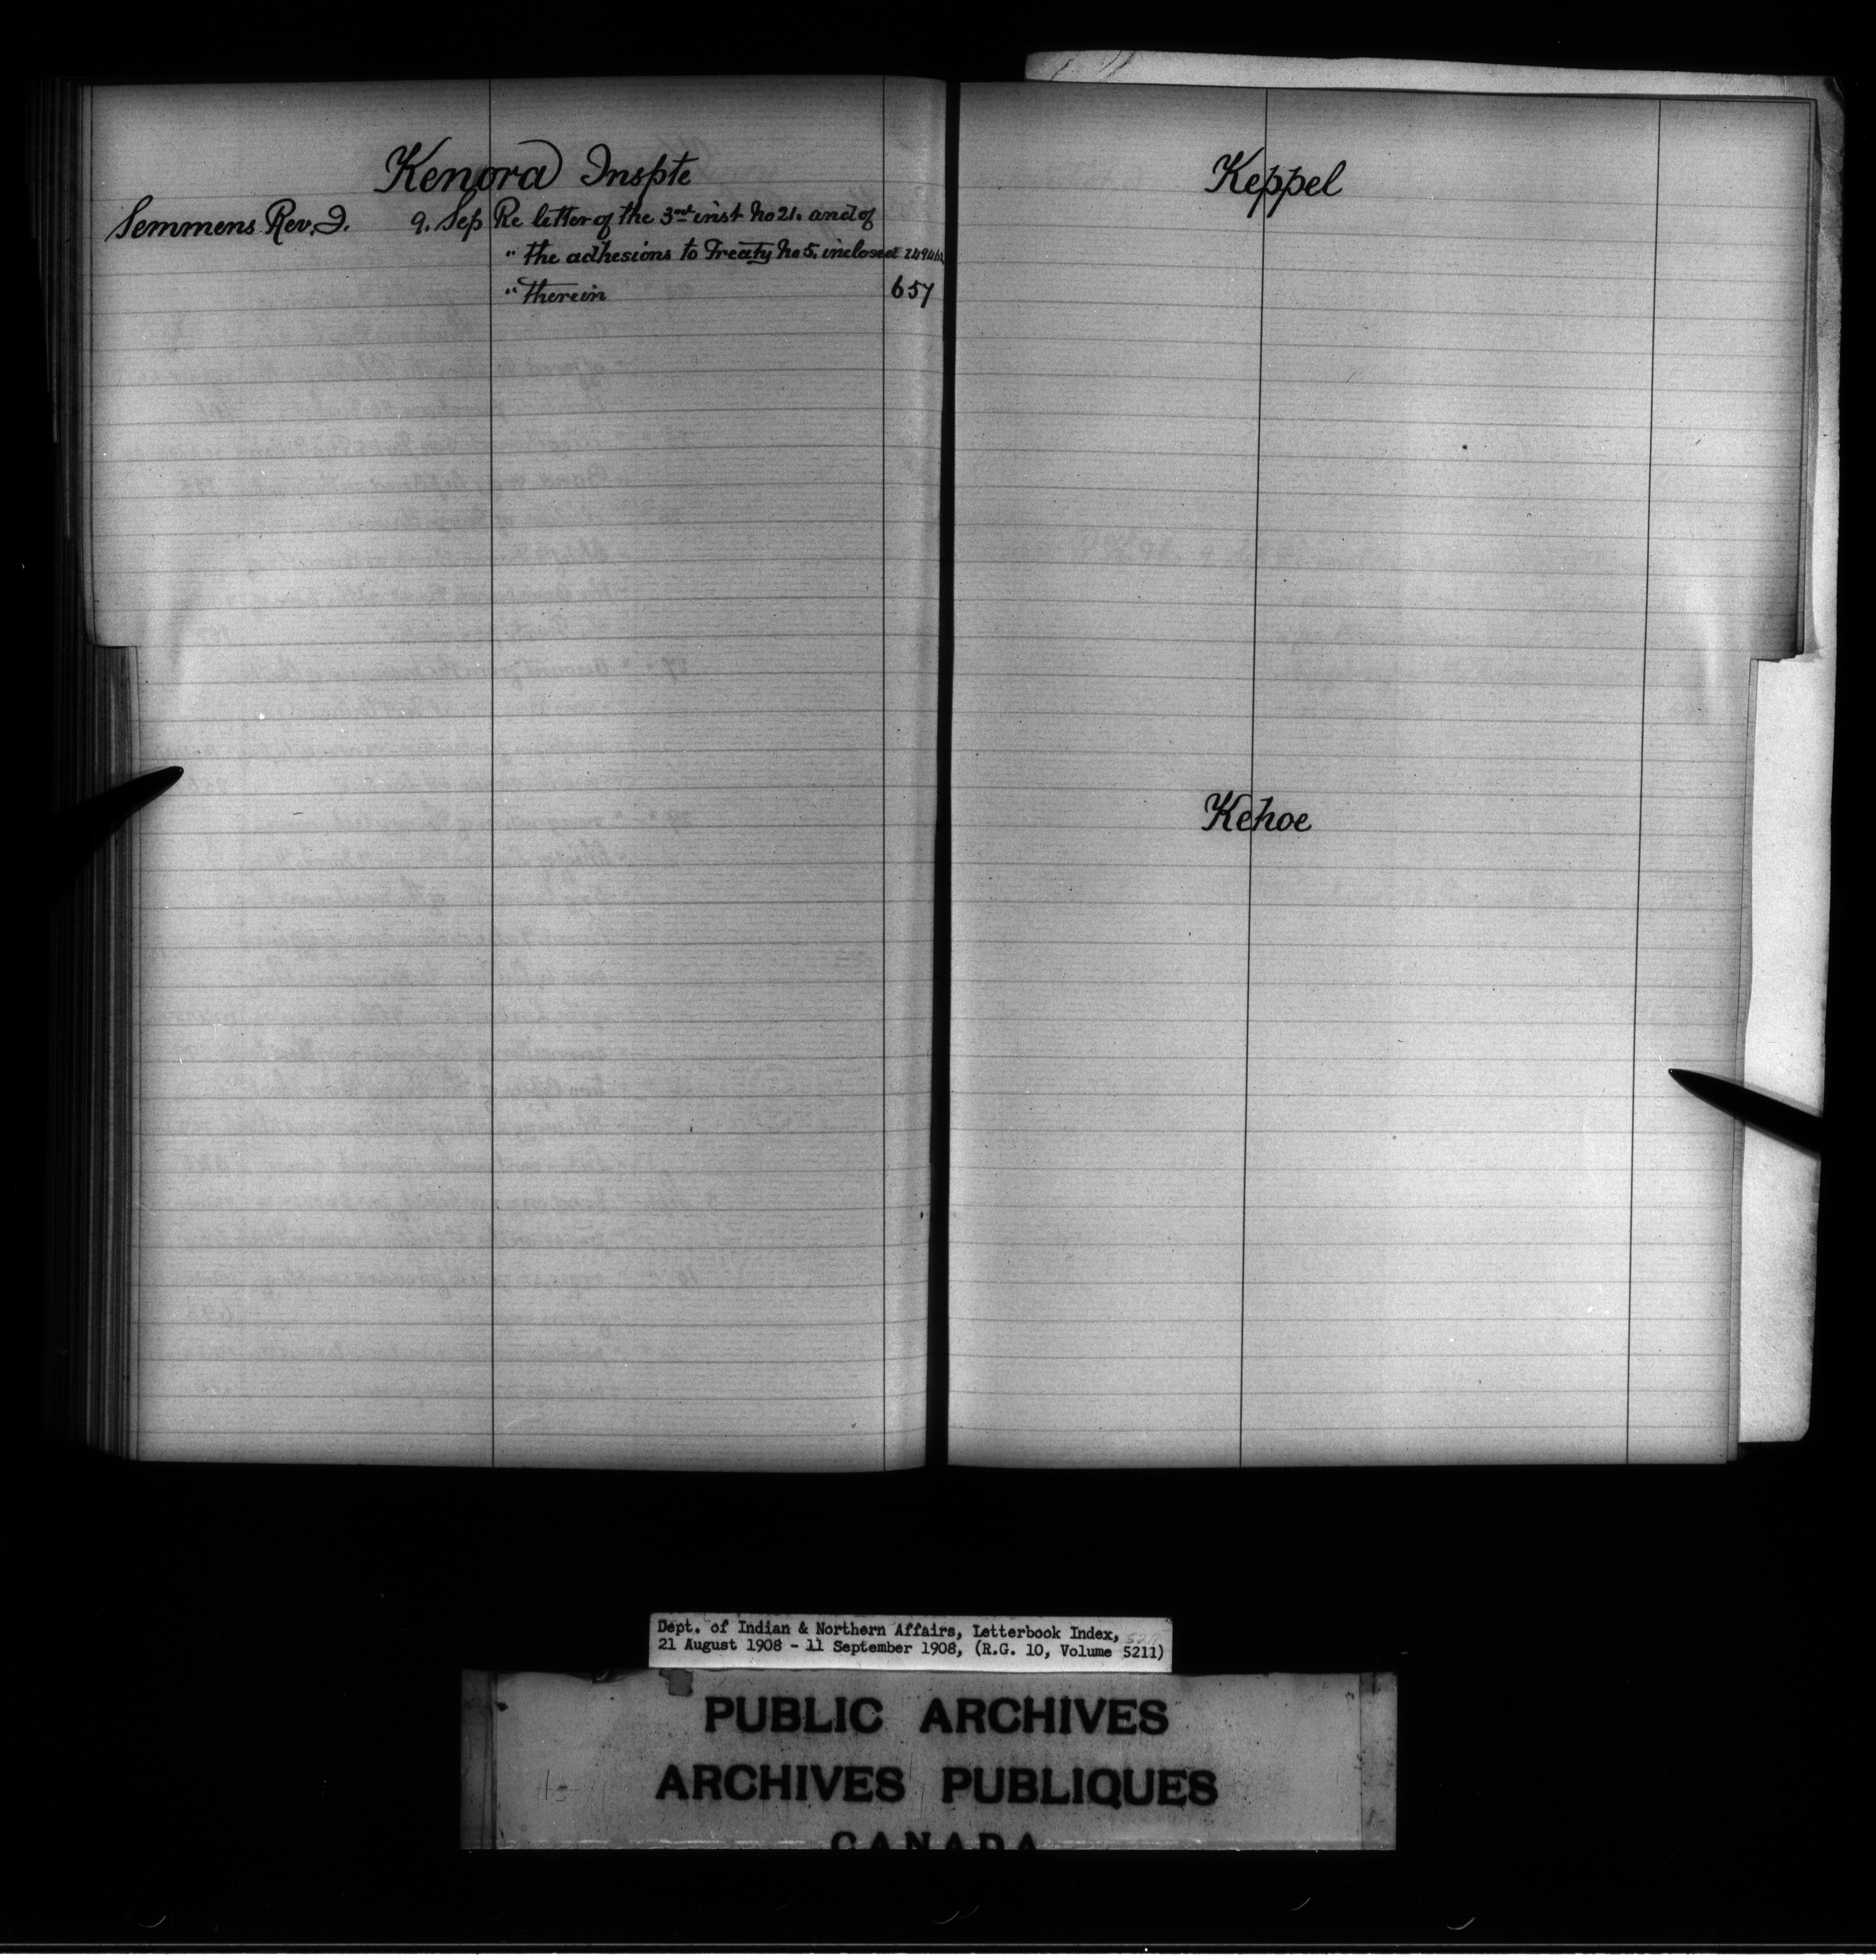 Kenora Inspte
Semmens Rev. J. 9. Sep Re letter of the 3rd inst No 21. and of
" the adhesions to Treaty No 5. inclosed
" therein 657
Keppel
Kehoe
Dept. of Indian & Northern Affairs, Letterbook Index,
21 August 1908 - 11 September 1908, (R.G. 10, Volume 5211)
PUBLIC ARCHIVES
ARCHIVES PUBLIQUES
CANADA